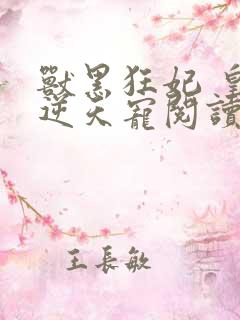 獸黑狂妃 皇
逆天寵閱讀
王長敏